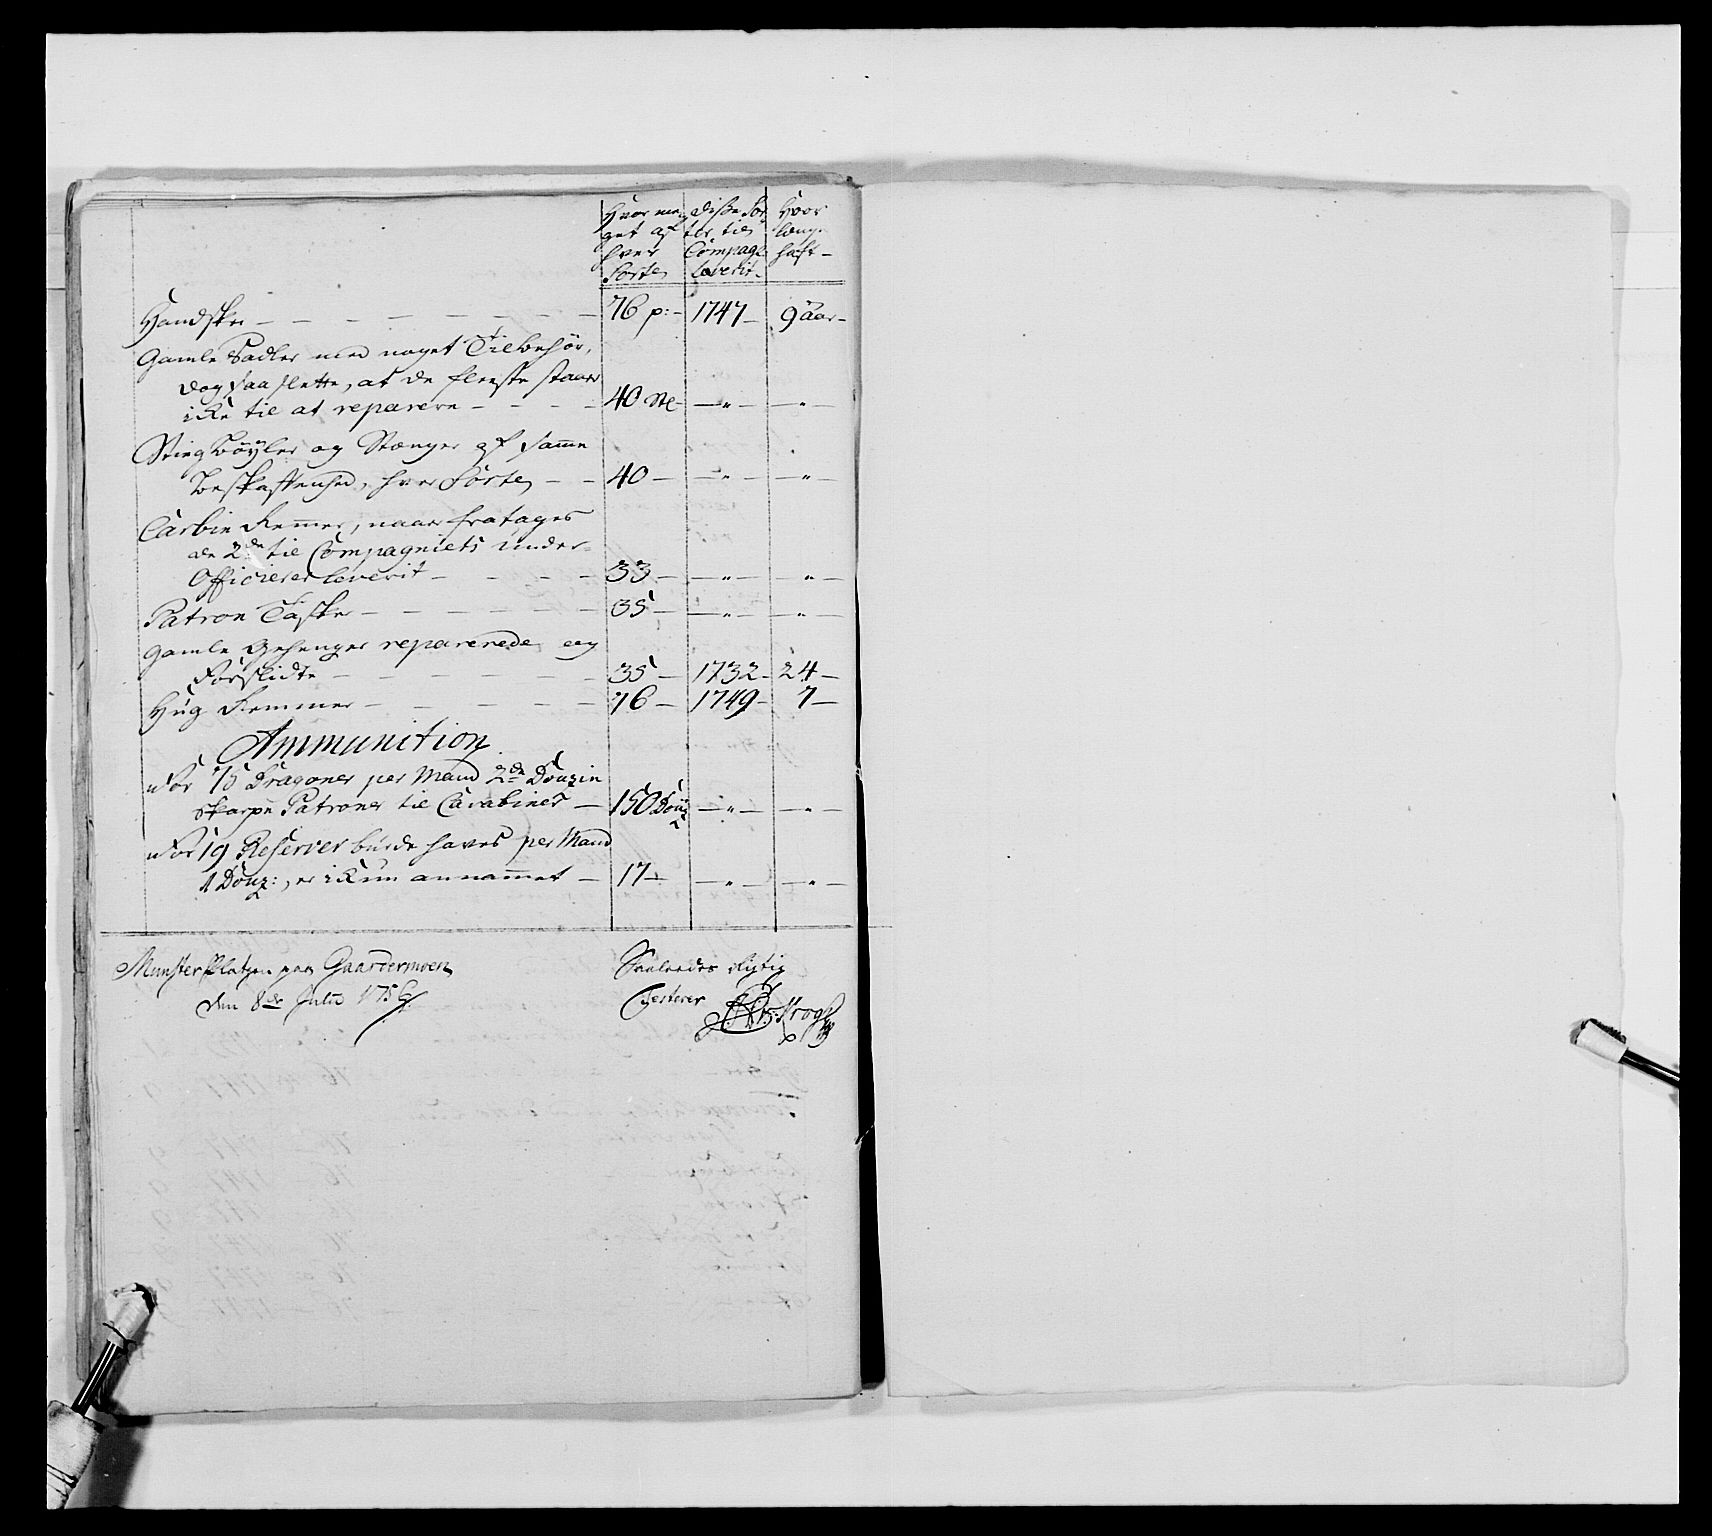 Hvor me- Disse Sor- Hvor
get af ter til længe
hver Compagt: haft-
Sorte leverit-
Handsker - - - - - - - - 76 p:- 1747- 9 Aar-
Gamle Sadler med noget Tilbehör,
dog saa slette, at de fleeste staar
icke til at reparere - - - - 40 Stk- -"- -"-
Stieg Böÿler og Stænger af samme
Beskaffenhed, hver Sorte - - 40- -"- -"-
Carbin Remmer, naar fratages
de 2de til Compagniets Under-
Officierer leverit - - - - 33- -"- -"-
Patron Tasker - - - - - - 35- -"- -"-
Gamle Gehenger reparerede og
Forslidte - - - - - - 35- 1732- 24-
Hug Remmer - - - - - - 76- 1749- 7-
Ammunition
For 75 Dragoner per Mand 2de Douzin
skarpe Patroner til Carabiner - 150 Douz -"- -"-
For 19 Reserver burde haves per Mand
1 Douz:, er ickun annammet - 17- -"- -"-
Munster Platzen paa Gaardermoen Saaledes rigtig
den 8de Julii 1756 Testerer
Krogh